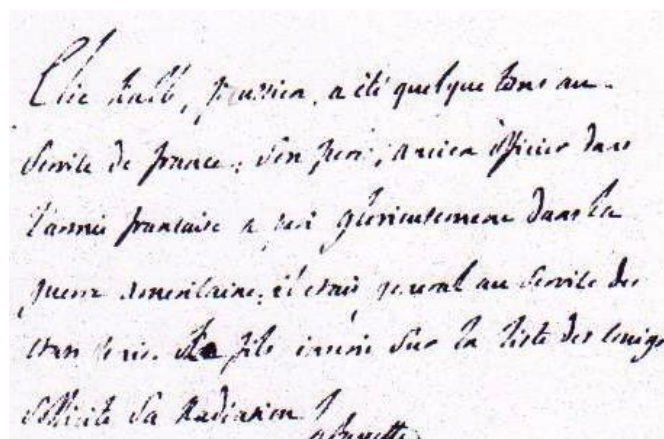 Elie Kalb, prussien, a été quelque tems au
Service de france; Son pere, ancien officier dans
l'armée francaise a peri glorieusement dans la
guerre americaine; il etait general au Service des
etats unis. Le fils inscrit Sur la liste des emigrés
Sollicite Sa Radiation